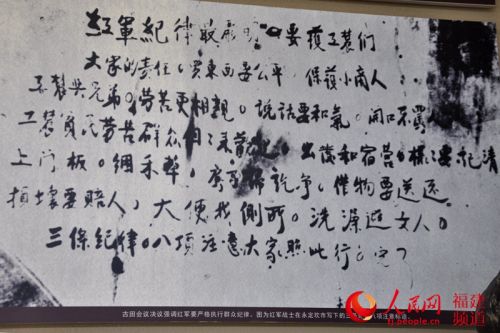 红軍紀律最嚴明 要護工農們
大家的責任。買東西要公平，保護小商人
工農兵兄弟。勞苦更相親。說話要和氣。開口不罵人
工農貧民勞苦群众 出發和宿營。樣樣要記清
上門板。綑禾草。房子掃乾净。借物要送還
損壞要賠人，大便找側所。洗澡避女人。
三條紀律。八項注意大家照此行
古田会议决议强调红军要严格执行群众纪律。图为红军战士在永定坎市写下的三 项注意标语。
人民网 福建
频道
fj.people.com.cn